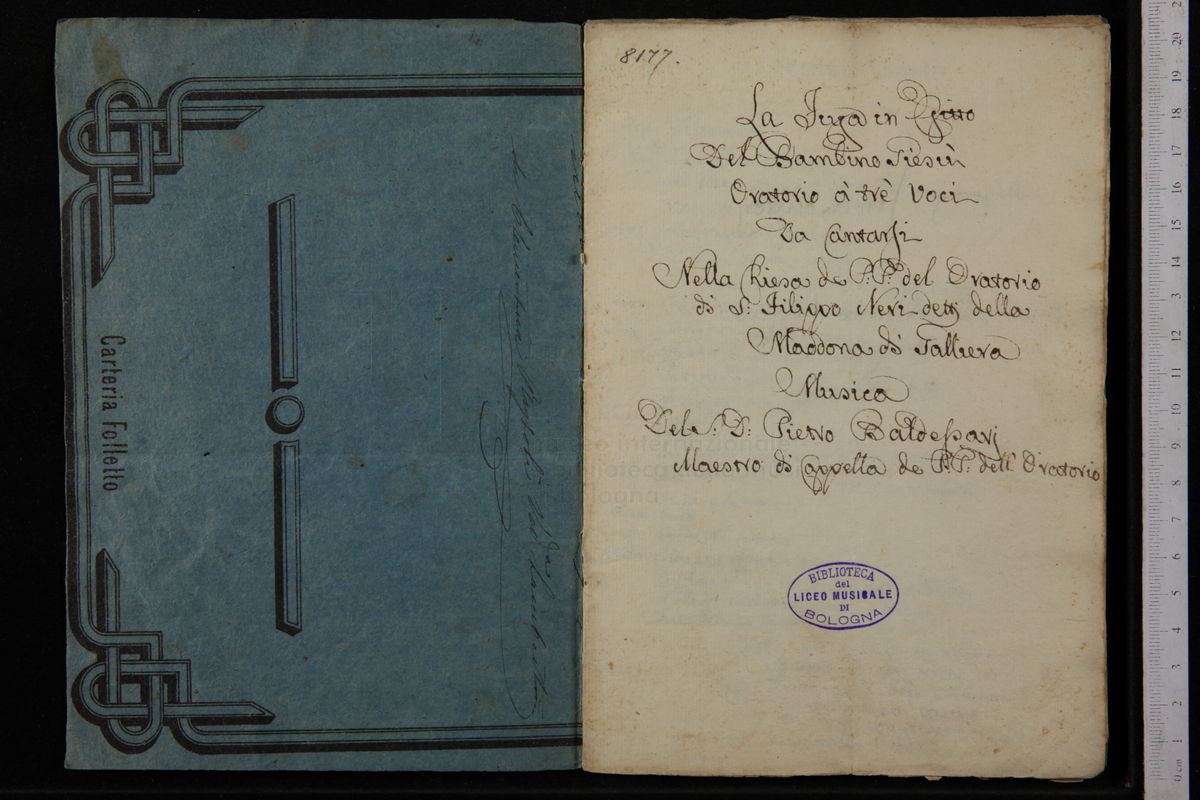 Carteria Folletto
8177.
La Fuga in Egitto
Del Bambino Giesù
Oratorio à trè Voci
Da Cantarsi
Nella Chiesa de P.P. del Oratorio
di S. Filippo Neri detti della
Maddona di Galliera
Musica
Del S. D. Pietro Baldessari
Maestro di Cappella de P.P. dell' Oratorio
BIBLIOTECA
del
LICEO MUSICALE
DI
BOLOGNA